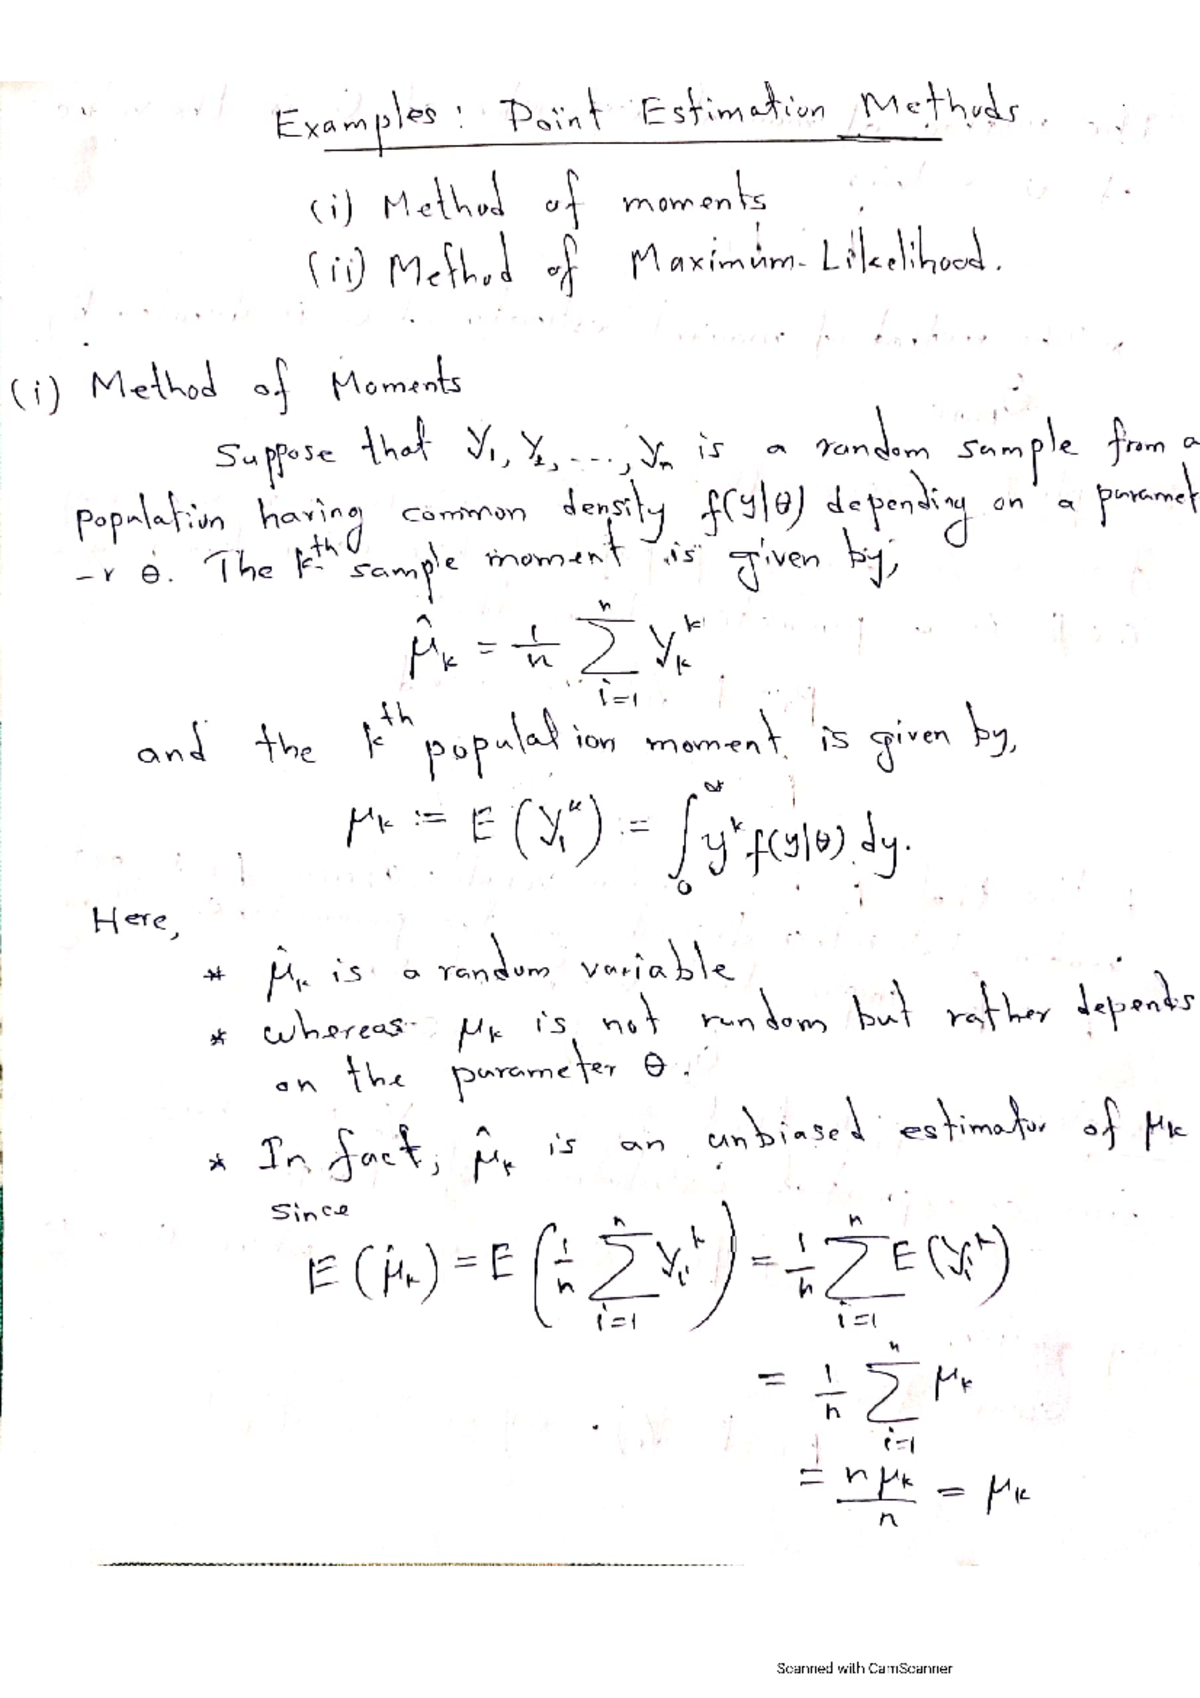 Examples: Point Estimation Methods.
(i) Method of moments
(ii) Method of Maximum-Likelihood.
(i) Method of Moments
Suppose that Y₁, Y₂, ..., Yₙ is a random sample from a
population having common density f(y|θ) depending on a paramet
-r θ. The kᵗʰ sample moment is given by,
μ̂ₖ = 1/n Σᵢ₌₁ⁿ Yₖᵏ
and the kᵗʰ population moment is given by,
μₖ := E(Y₁ᵏ) := ∫₀^∞ yᵏ f(y|θ) dy.
Here,
* μ̂ₖ is a random variable
* whereas μₖ is not random but rather depends
on the parameter θ.
* In fact, μ̂ₖ is an unbiased estimator of μₖ
since
E(μ̂ₖ) = E(1/n Σᵢ₌₁ⁿ Yᵢᵏ) = 1/n Σᵢ₌₁ⁿ E(Yᵢᵏ)
= 1/n Σᵢ₌₁ⁿ μₖ
= nμₖ/n = μₖ
Scanned with CamScanner